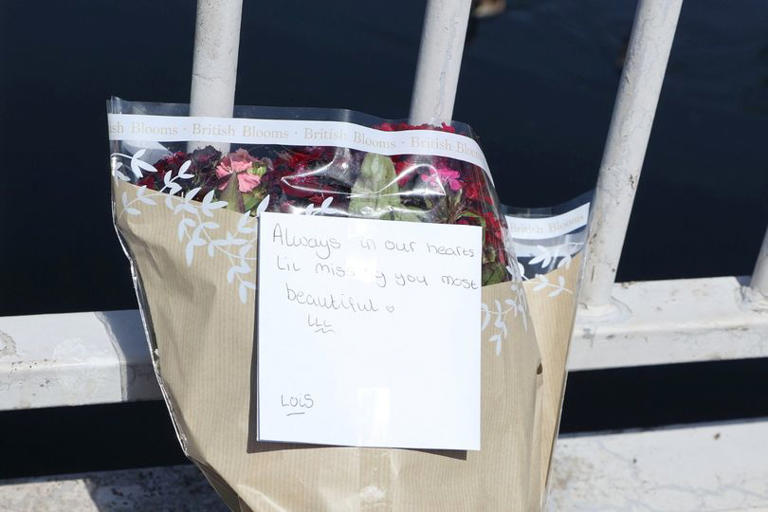 ish Blooms · British Blooms · British Blooms · British Bloo
British Blooms
Always in our hearts
Lil missy you most
beautiful ♡
LOIS